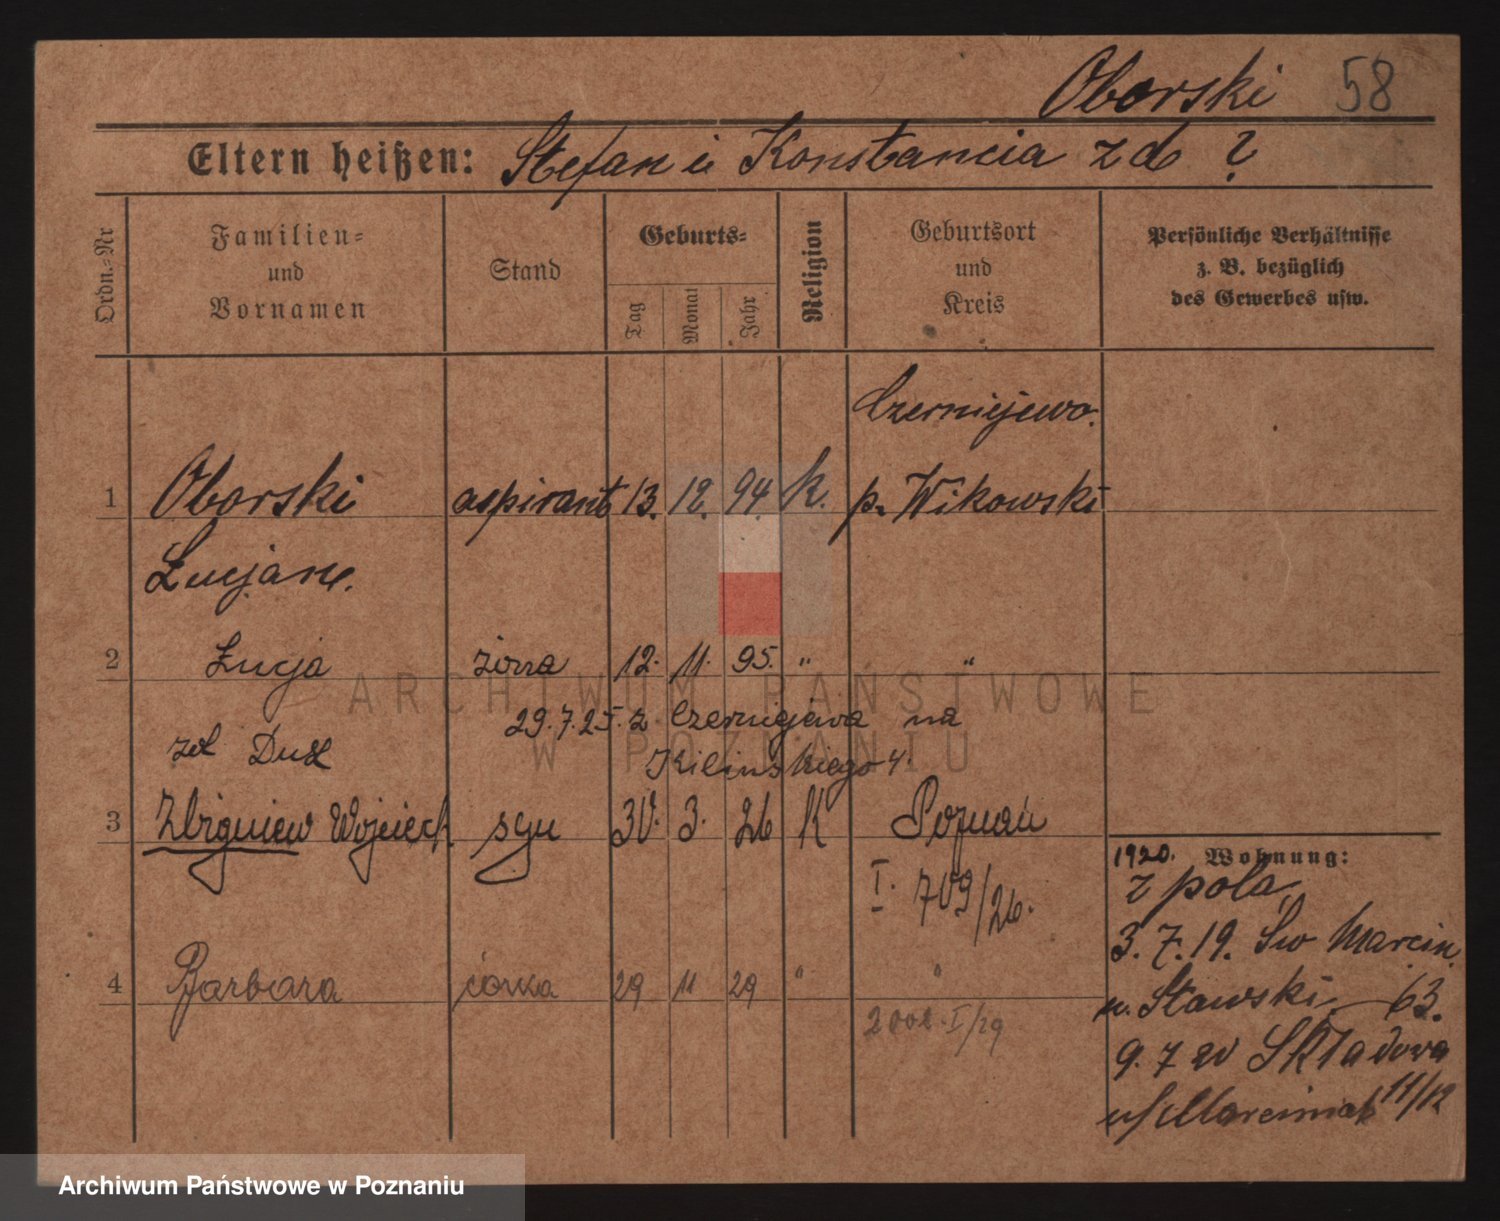 Oborski 58
Eltern heißen: Stefan i Konstancia z d ?
Ordn.-Nr
Familien-
und
Vornamen
Stand
Geburts-
Tag
Monat
Jahr
Religion
Geburtsort
und
Kreis
Persönliche Verhältnisse
z. B. bezüglich
des Gewerbes usw.
Czerniejewo.
1 Oborski aspirant 13. 12. 94. k. p. Wikowski
Łucjan.
2 Łucja żona 12. 11. 95. " "
29.7.25. z Czerniejewa na
zd Dux
Kilińskiego 4.
3 Zbigniew Wojciech syn 30. 3. 26 K Poznań
I. 709/26.
1920. Wohnung:
z pola
3. 7. 19. Św Marcin
u. Stawski 63.
4 Barbara córka 29 11 29 " "
2002. I/29
9. 7 20 Składowa
u/ Marciniak 11/12
ARCHIWUM PAŃSTWOWE
W POZNANIU
Archiwum Państwowe w Poznaniu